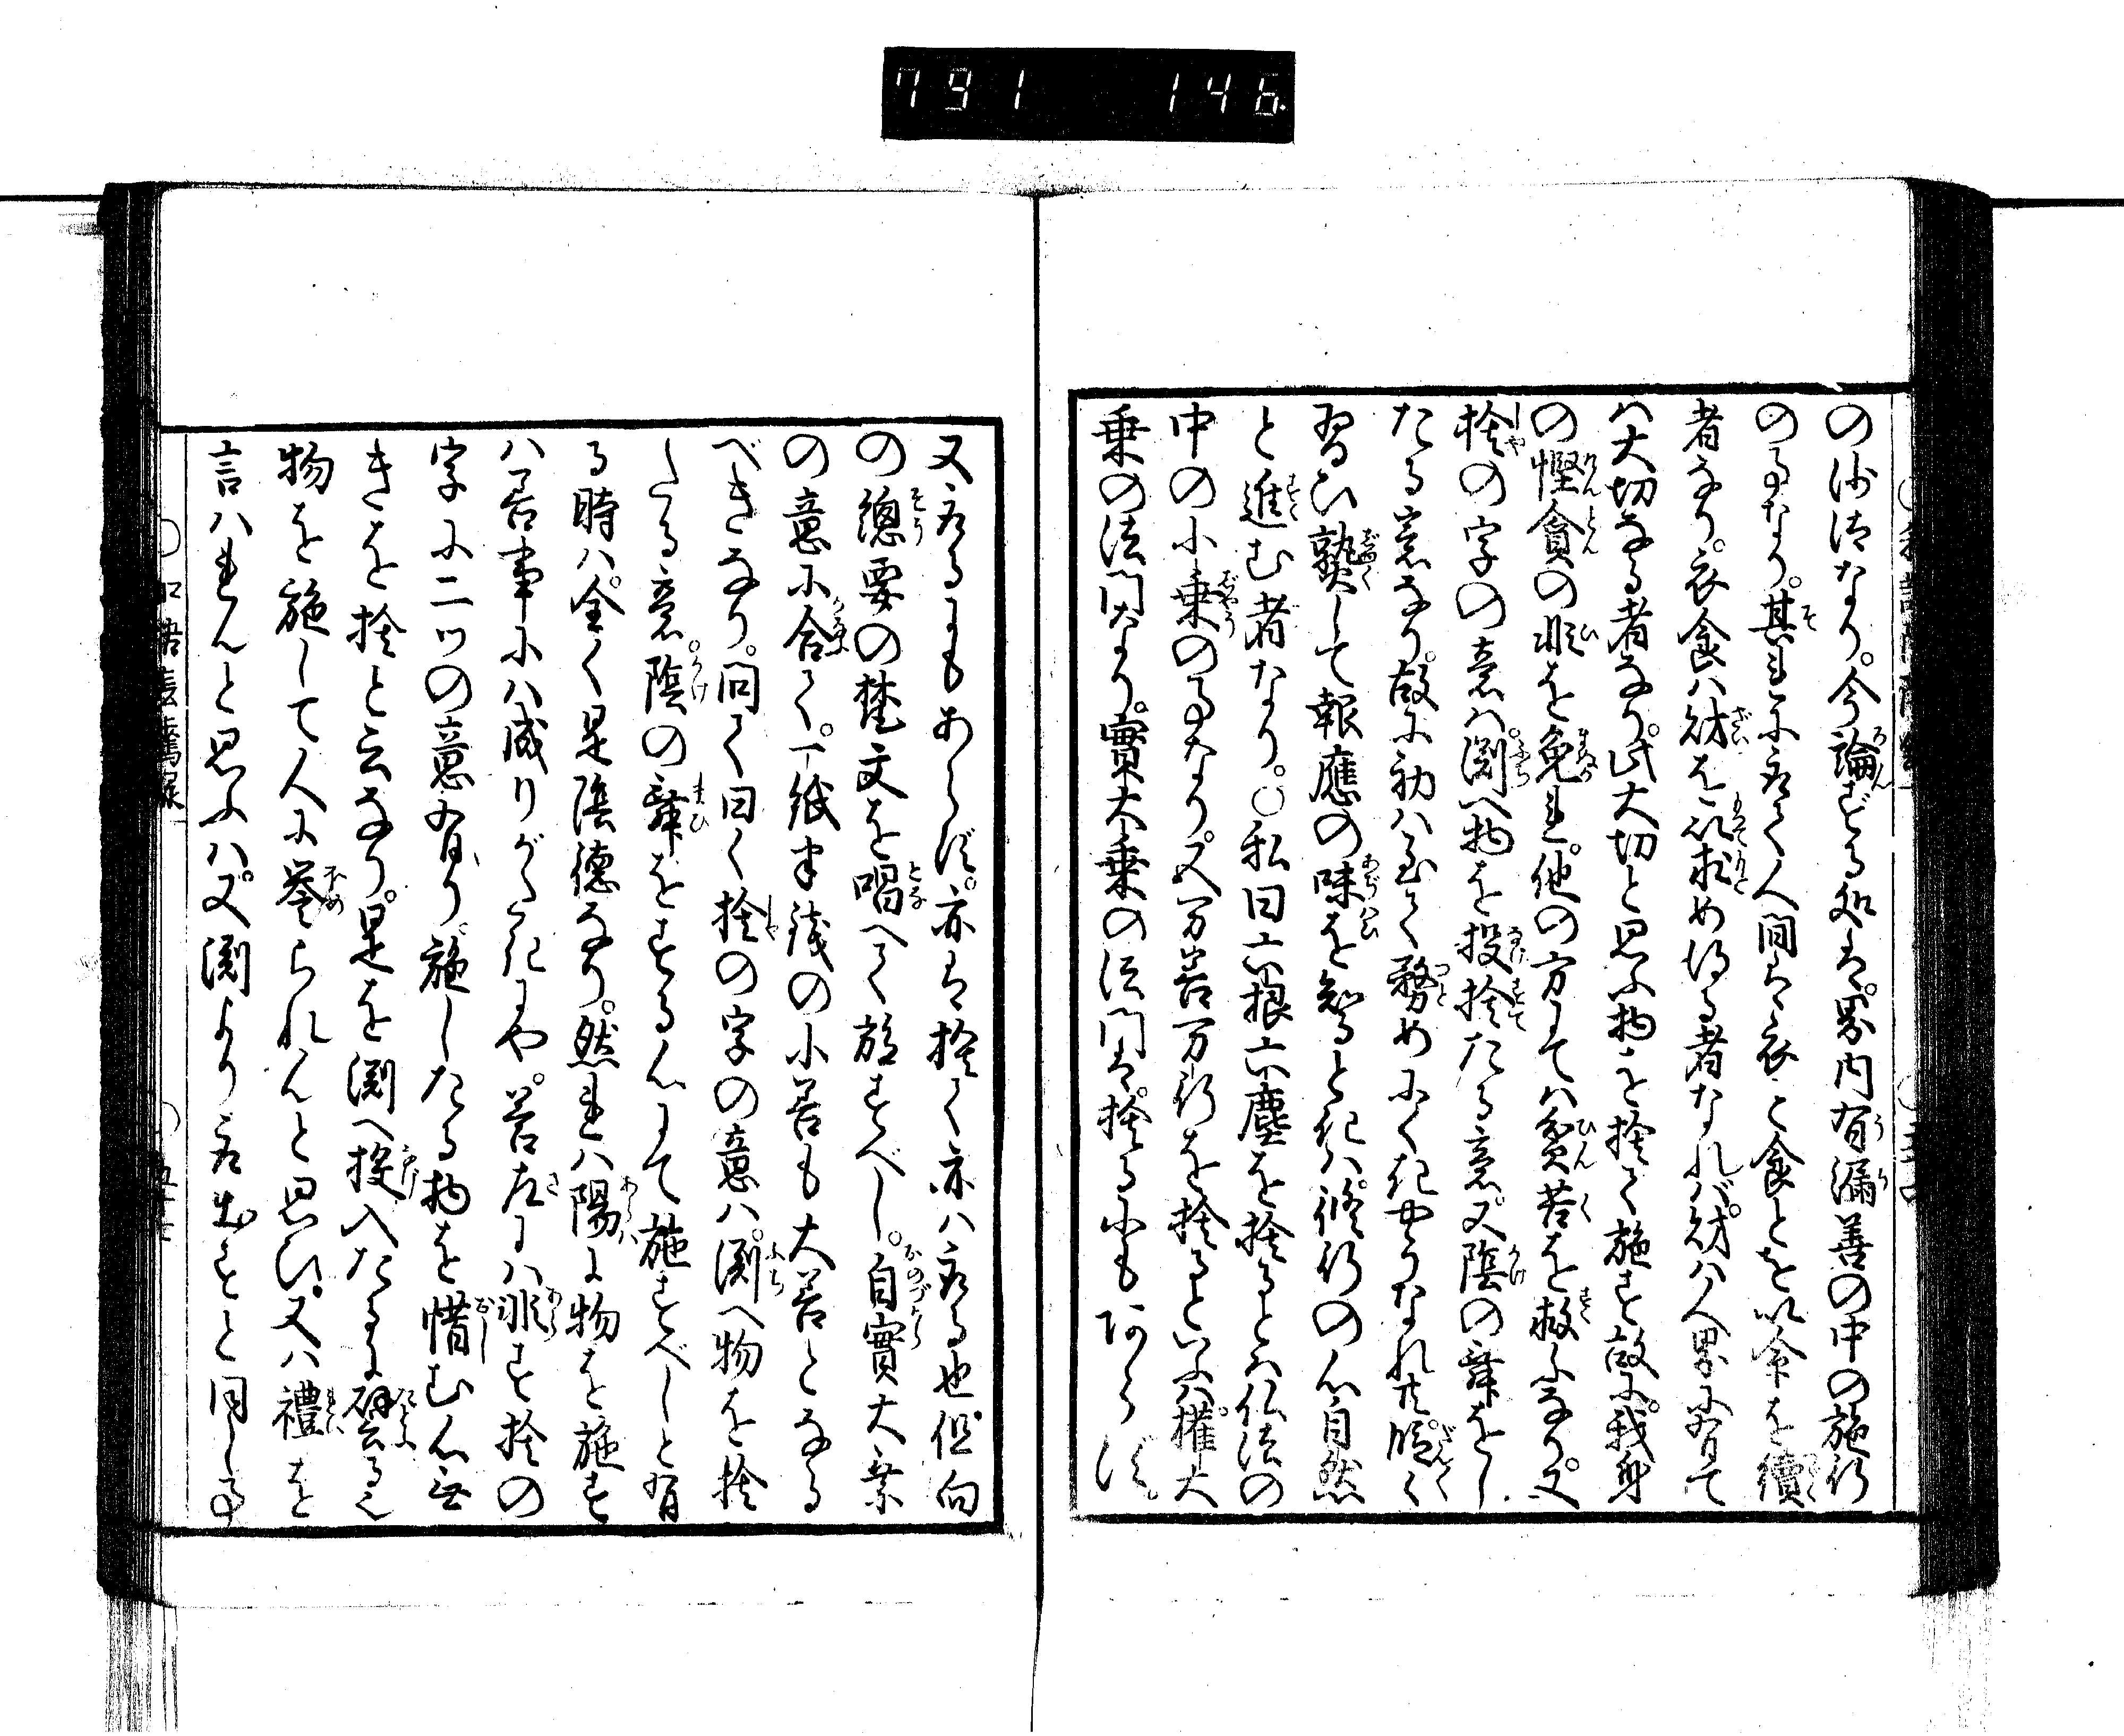 791 146
の沙汰なり。今論ずる処は。界内有漏善の中の施行
の事なり。其れに就て人間は衣と食とを以命を續
者なり。衣食ハ財を以求め得る者なれバ。財ハ人界に有て
ハ大切なる者なり。此大切と思ふ物を捨て施す故に。我身
の慳貪の非を免れ。他の方にてハ貧苦を救ふなり。又
捨の字の意ハ。渕へ物を投捨たる意。又陰の舞をし
たる意なり。故に初ハ至て務めにくきやうなれ共。漸く
習ひ熟して報應の味を知るときハ。修行の心自然
と進む者なり。○私曰六根六塵を捨るとハ仏法の
中の小乗の事なり。又万善万行を捨るといふハ權大
乗の法門なり。實大乗の法門は。捨るにもあらず。
又取るにもあらず。亦は捨て亦ハ取る也。但向
の總要の梵文を唱へて施すべし。自實大乗
の意に合て。一紙半銭の小善も大善となる
べきなり。問て曰く捨の字の意ハ。渕へ物を捨
たる意。陰の舞をする心にて施すべしと有
る時ハ。全く是陰德なり。然れハ陽に物を施す
ハ善事にハ成りがたきにや。答左にハ非ず捨の
字に二ツの意有り。施したる物を惜む心無
きを捨と云なり。是を渕へ投入たるに譬るん
物を施して人に誉られんと思ひ。又ハ禮を
言ハれんと思ふハ。又渕より取出すと同し事